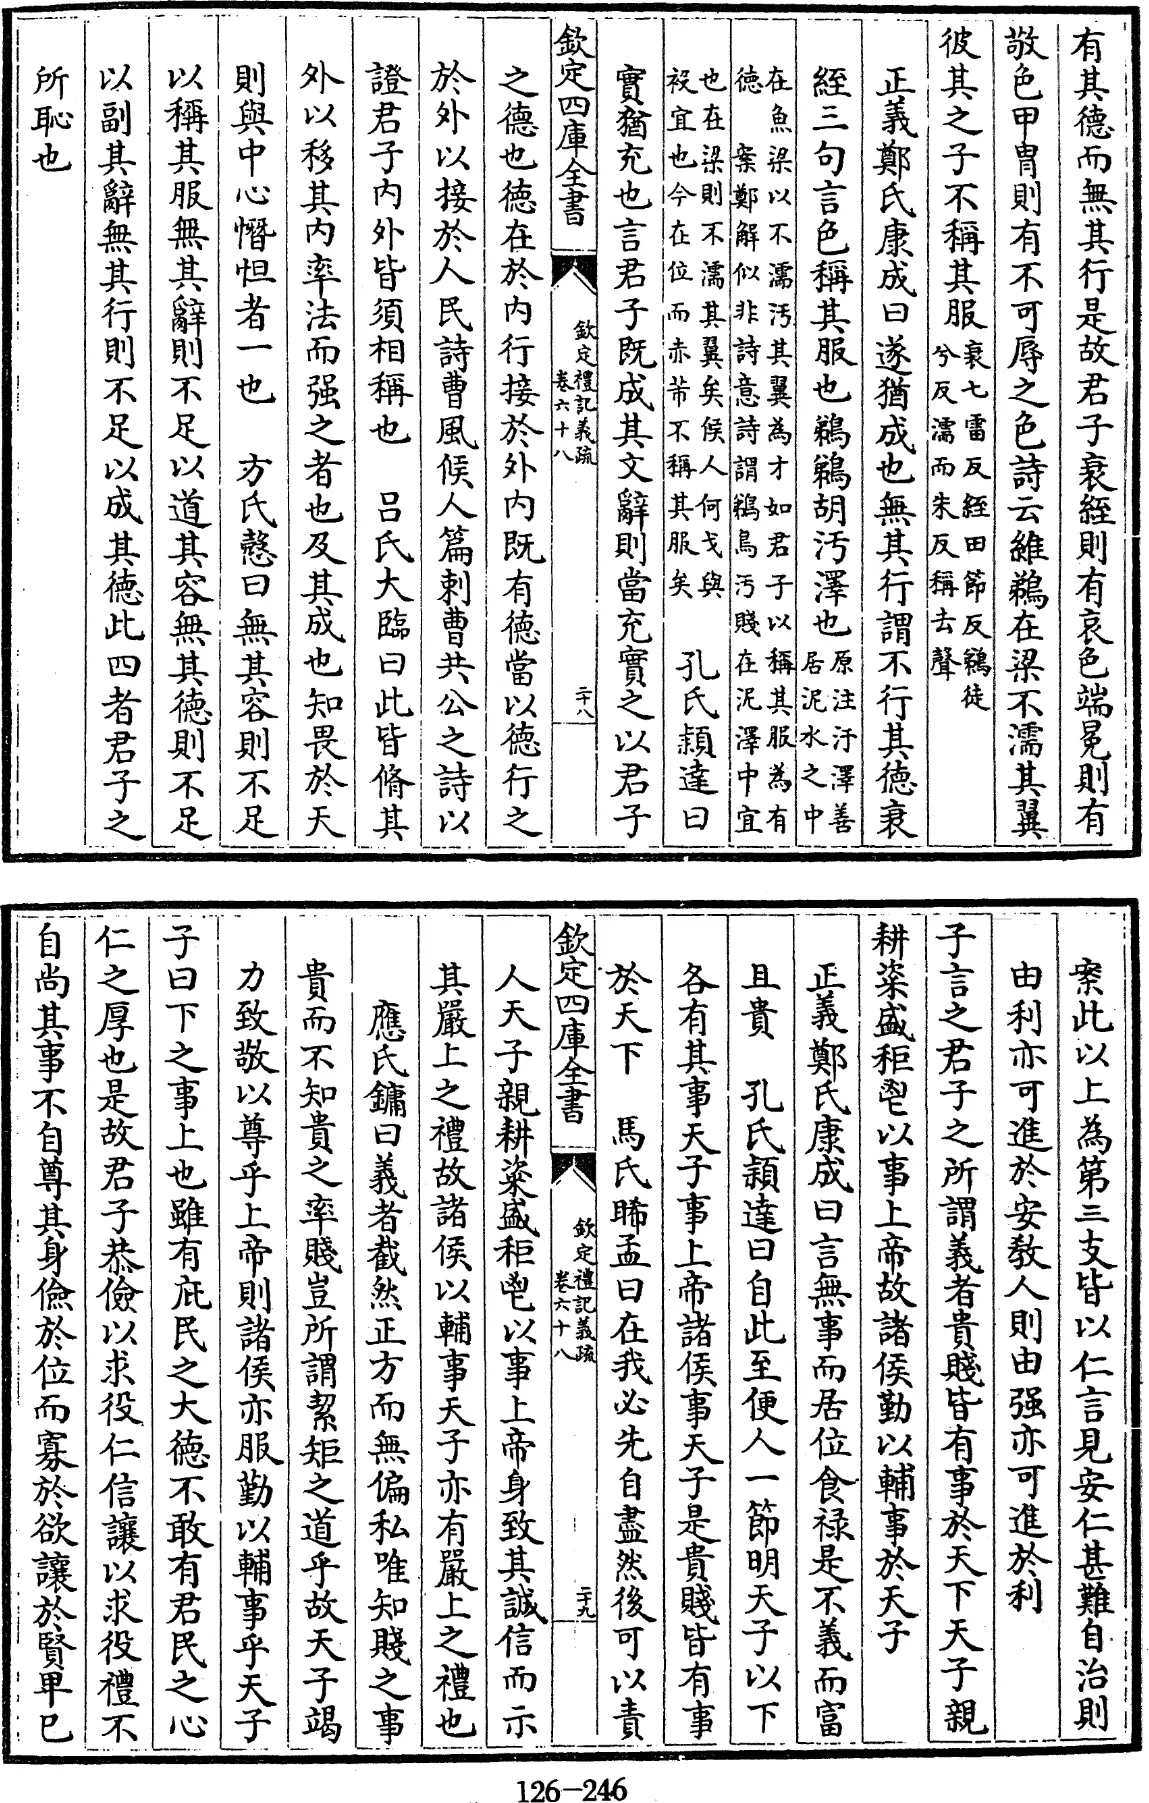 有其德而無其行是故君子衰絰則有哀色端冕則有
敬色甲冑則有不可辱之色詩云維鵜在梁不濡其翼
彼其之子不稱其服衰七雷反絰田節反鵜徒
兮反濡而朱反稱去聲
正義鄭氏康成曰遂猶成也無其行謂不行其德衰
絰三句言色稱其服也鵜鵜胡汚澤也原注汙澤善
居泥水之中
在魚梁以不濡汚其翼為才如君子以稱其服為有
德 案鄭解似非詩意詩謂鵜鳥汚賤在泥澤中宜
也在梁則不濡其翼矣候人何戈與
祋宜也今在位而赤芾不稱其服矣 孔氏穎達曰
實猶充也言君子既成其文辭則當充實之以君子
欽定四庫全書
欽定禮記義疏
卷六十八
二十八
之德也德在於內行接於外內既有德當以德行之
於外以接於人民詩曹風候人篇刺曹共公之詩以
證君子內外皆須相稱也 呂氏大臨曰此皆脩其
外以移其內率法而强之者也及其成也知畏於天
則與中心憯怛者一也 方氏慤曰無其容則不足
以稱其服無其辭則不足以道其容無其德則不足
以副其辭無其行則不足以成其德此四者君子之
所恥也
案此以上為第三支皆以仁言見安仁甚難自治則
由利亦可進於安教人則由强亦可進於利
子言之君子之所謂義者貴賤皆有事於天下天子親
耕粢盛秬鬯以事上帝故諸侯勤以輔事於天子
正義鄭氏康成曰言無事而居位食祿是不義而富
且貴 孔氏穎達曰自此至便人一節明天子以下
各有其事天子事上帝諸侯事天子是貴賤皆有事
於天下 馬氏睎孟曰在我必先自盡然後可以責
欽定四庫全書
欽定禮記義疏
卷六十八
二十九
人天子親耕粢盛秬鬯以事上帝身致其誠信而示
其嚴上之禮故諸侯以輔事天子亦有嚴上之禮也
應氏鏞曰義者截然正方而無偏私唯知賤之事
貴而不知貴之率賤豈所謂絜矩之道乎故天子竭
力致敬以尊乎上帝則諸侯亦服勤以輔事乎天子
子曰下之事上也雖有庇民之大德不敢有君民之心
仁之厚也是故君子恭儉以求役仁信讓以求役禮不
自尚其事不自尊其身儉於位而寡於欲讓於賢卑已
126-246